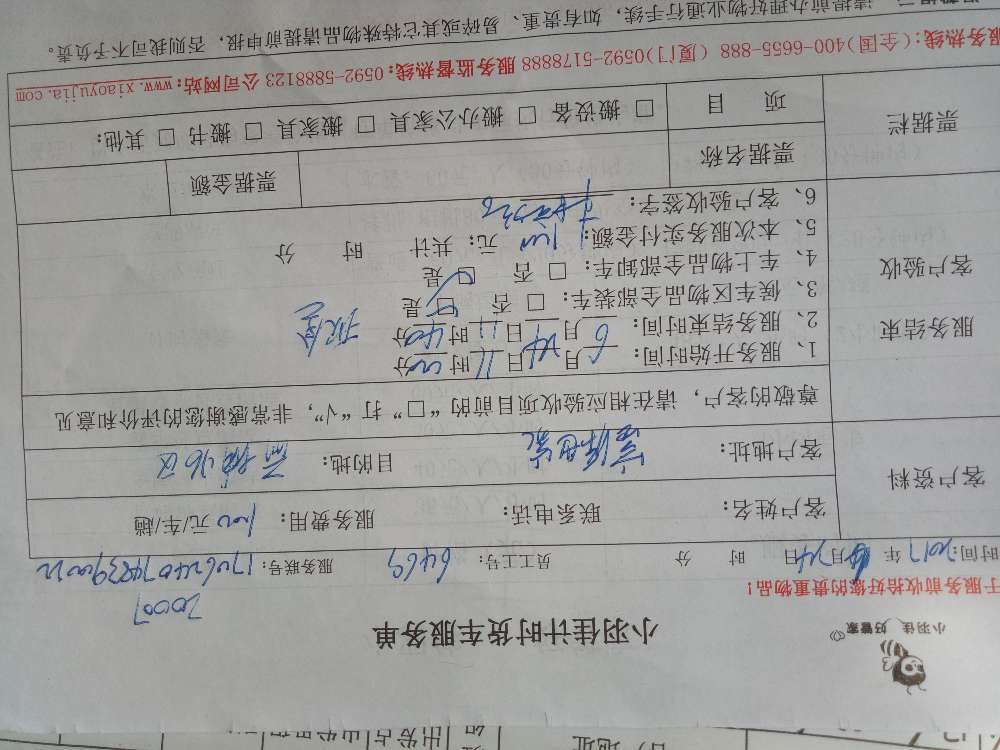 小羽佳 好管家
小羽佳计时货车服务单
20007
于服务前收拾好您的贵重物品！
时间：2017年 6月24日 时 分 员工工号：6469 服务联号：
客户资料
客户姓名： 联系电话： 服务费用： 元/车/趟
客户地址： 目的地：
尊敬的客户，请在相应验收项目前的“□”打“√”，非常感谢您的评价和意见
服务结束
客户验收
1、服务开始时间：6月24日11时00分
2、服务结束时间：6月24日11时40分
3、候车区物品全部装车：□ 否 □ 是
4、车上物品全部卸车：□ 否 □ 是
5、本次服务实付金额： 元；共计 时 分
6、客户验收签字：
票据栏
票据名称 票据金额
项 目 □ 搬设备 □ 搬办公家具 □ 搬家具 □ 搬书 □ 其他：
服务热线：(全国)400-6655-888 (厦门)0592-5178888 服务监督热线：0592-5888123 公司网站：www.xiaoyujia.com
请提前办理好物业通行手续，如有贵重、易碎或其它特殊物品请提前申报，否则我司不予负责。